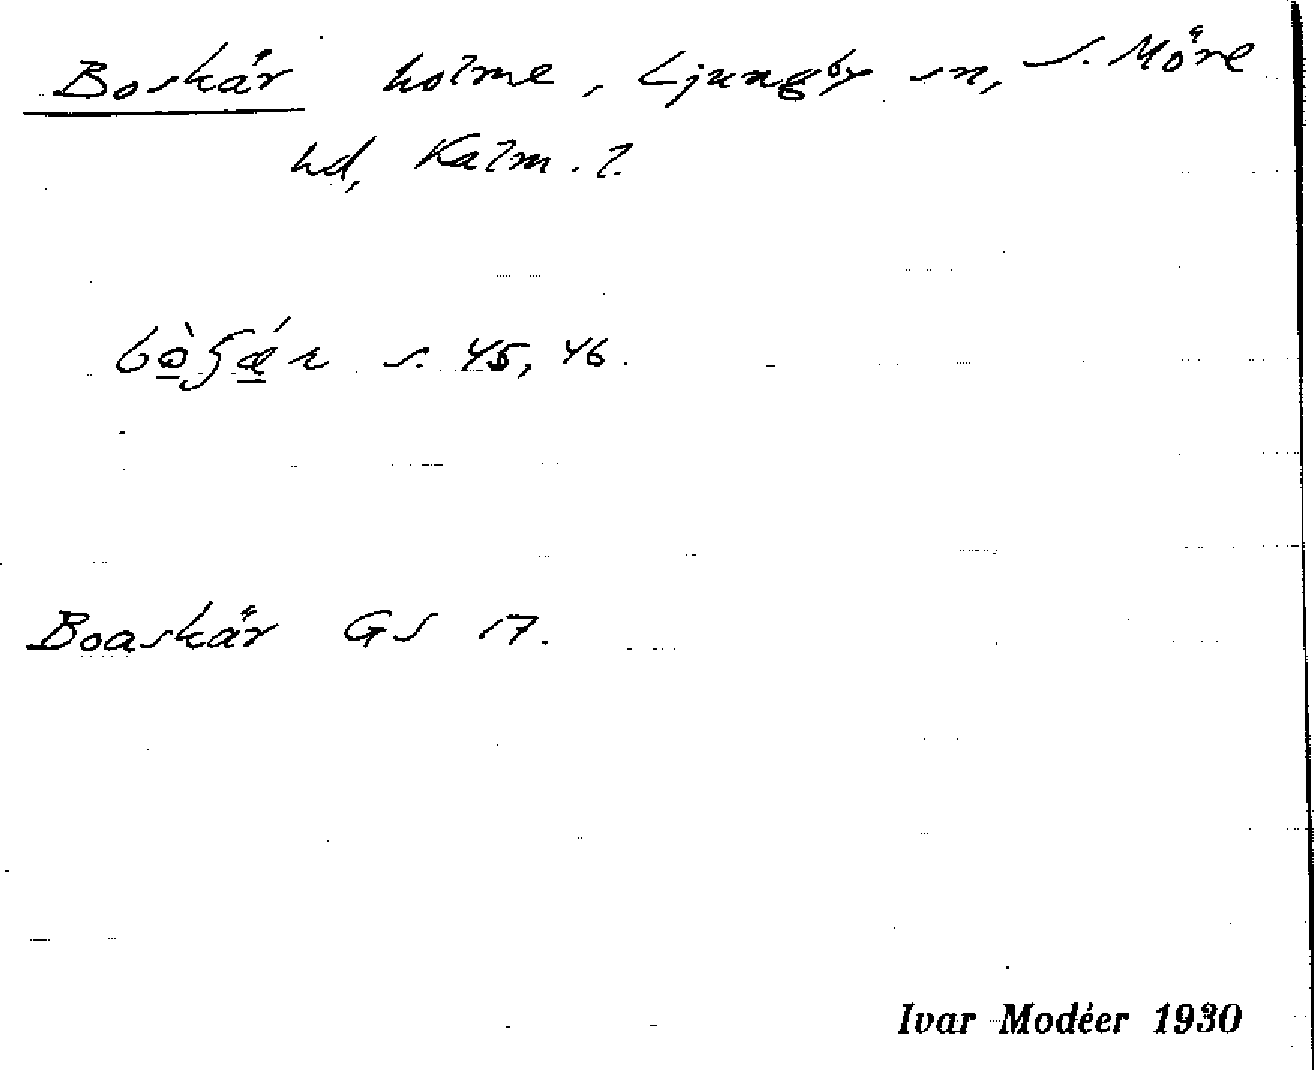 Boskär holme, Ljungby sn, S. Möre
hd, Kalm. l.
s. 45, 46.
Boaskär GS 17.
Ivar Modéer 1930